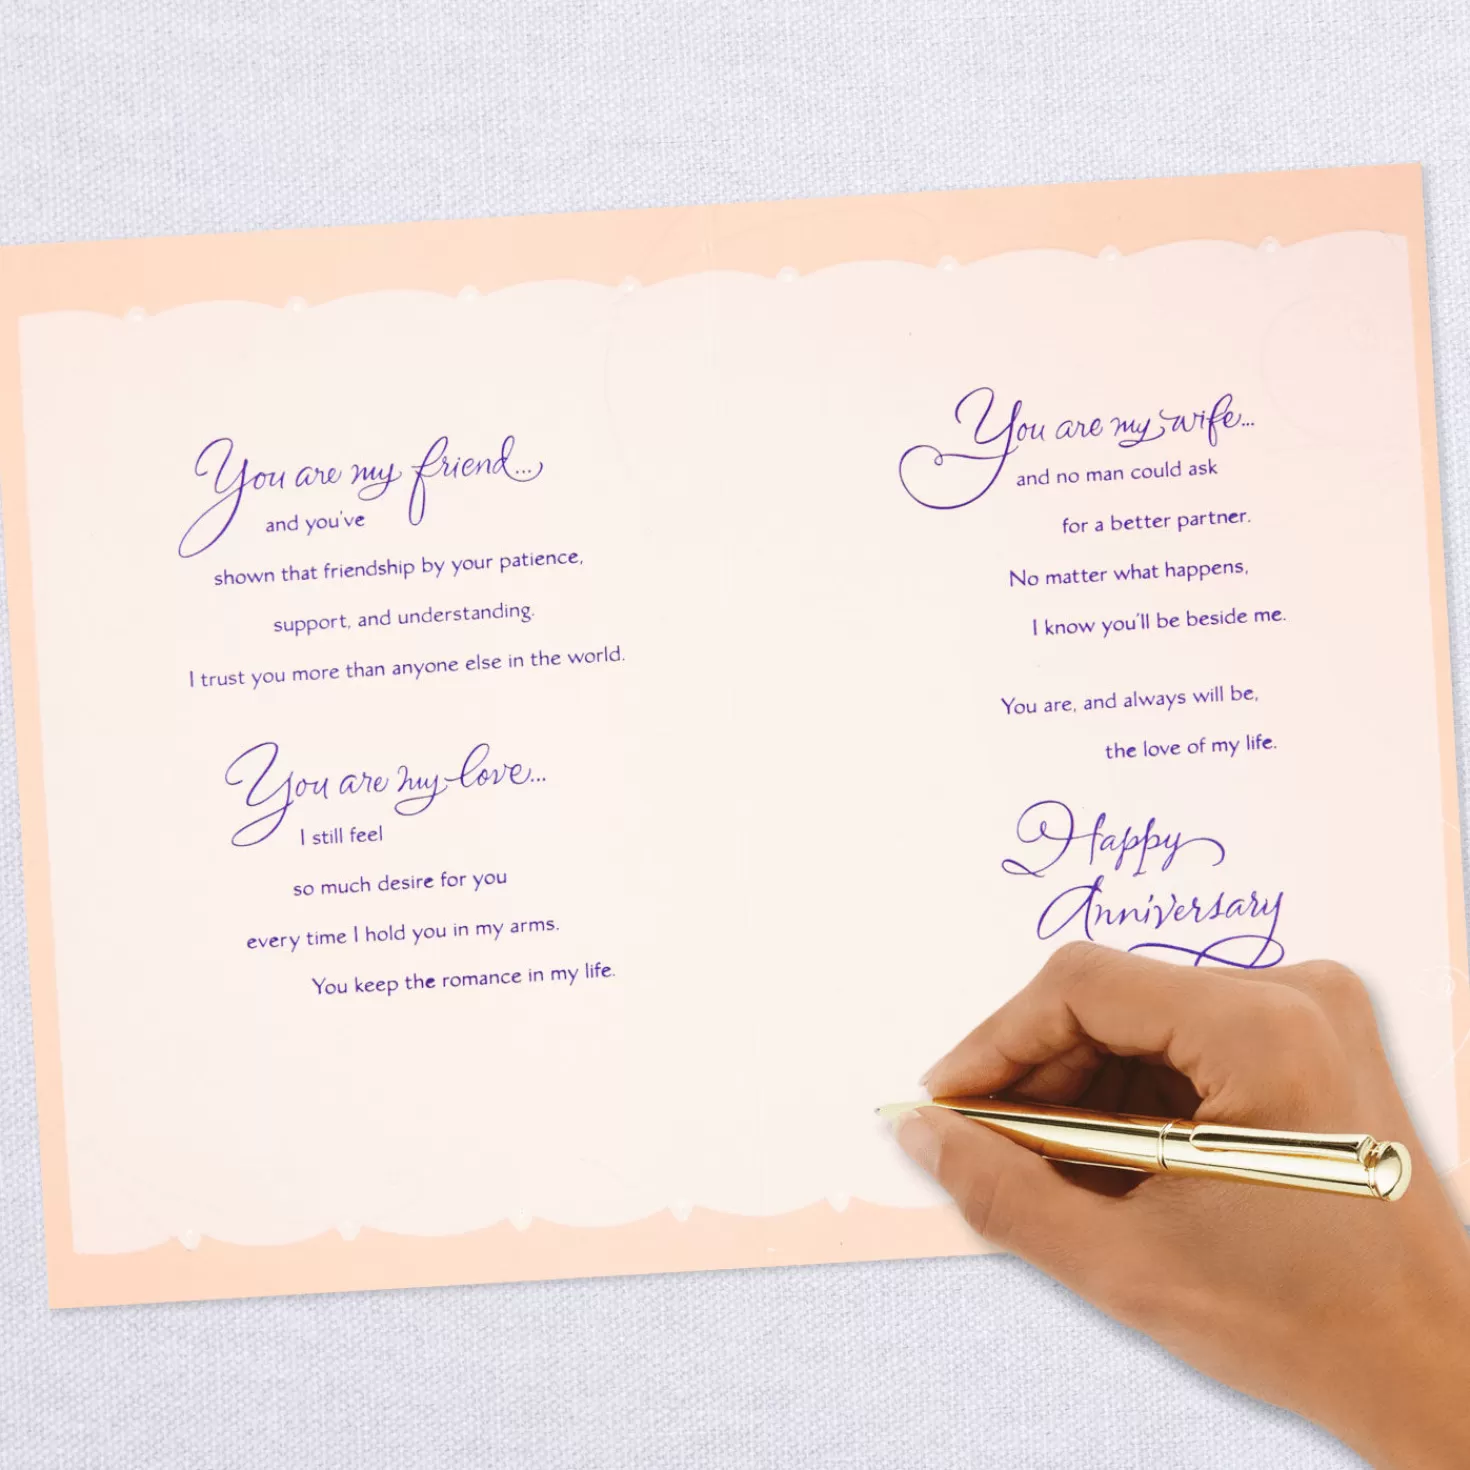 You are my friend...
and you've
shown that friendship by your patience,
support, and understanding.
I trust you more than anyone else in the world.
You are my love...
I still feel
so much desire for you
every time I hold you in my arms.
You keep the romance in my life.
You are my wife...
and no man could ask
for a better partner.
No matter what happens,
I know you'll be beside me.
You are, and always will be,
the love of my life.
Happy
Anniversary